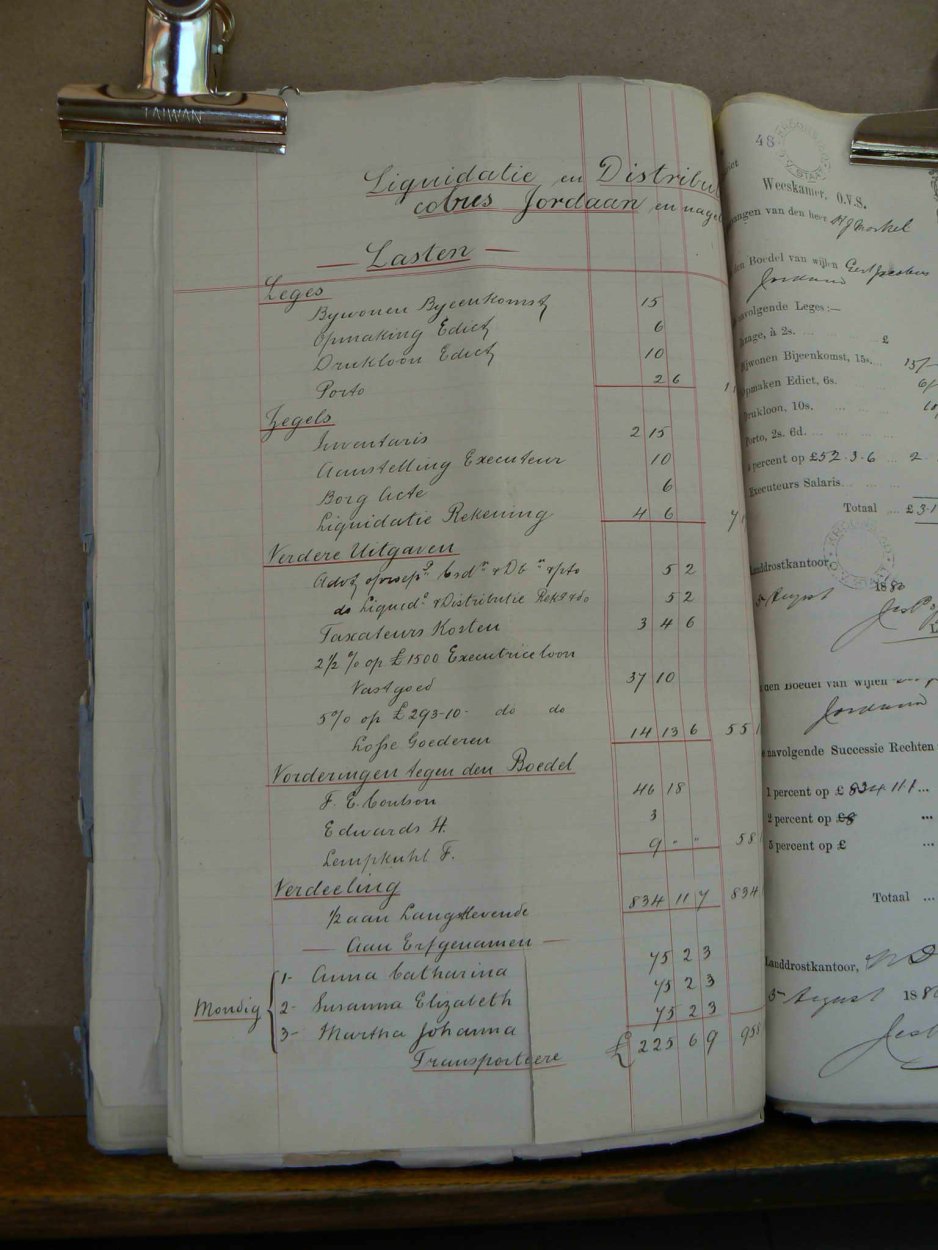 TAIWAN
Liquidatie en Distribu
cobus Jordaan en nage
— Lasten —
Leges
Bywonen Byeenkomst 15
Opmaking Edict 6
Drukloon Edict 10
Porto 2 6 1
Zegels
Inventaris 2 15
Aanstelling Executeur 10
Borg Acte 6
Liquidatie Rekening 4 6 7
Verdere Uitgaven
5 2
do Liquidº & Distributie Rek 5 2
Taxateurs Kosten 3 4 6
2½ % op £1500 Executrice loon
Vastgoed 37 10
5% op £293-10- do do
Losse Goederen 14 13 6 55
Vorderingen tegen den Boedel
F. E. Coulson 46 18
Edwards H. 3
Lempkuhl F. 9 " " 58
Verdeeling
½ aan Langstlevende 834 11 7 834
— Aan Erfgenamen —
1- Anna Catharina 75 2 3
Mondig 2- Susanna Elizabeth 75 2 3
3- Martha Johanna 75 2 3
Transporteere £ 225 6 9 958
48
Weeskamer, O.V.S.
angen van den heer
den Boedel van wijlen Gert Jacobus
Jordaan
navolgende Leges:—
à 2s. ... £
ijwonen Bijeenkomst, 15s. 15/-
pmaken Edict, 6s. 6/
rukloon, 10s. 10
Porto, 2s. 6d.
percent op £52.3.6 ... 2
Executeurs Salaris
Totaal ... £3.1
Landdrostkantoor,
August 188
den Boedel van wijlen
Jordaan
navolgende Successie Rechten
1 percent op £ 834 11/1 ...
2 percent op £ ...
5 percent op £ ...
Totaal ...
Landdrostkantoor,
August 188